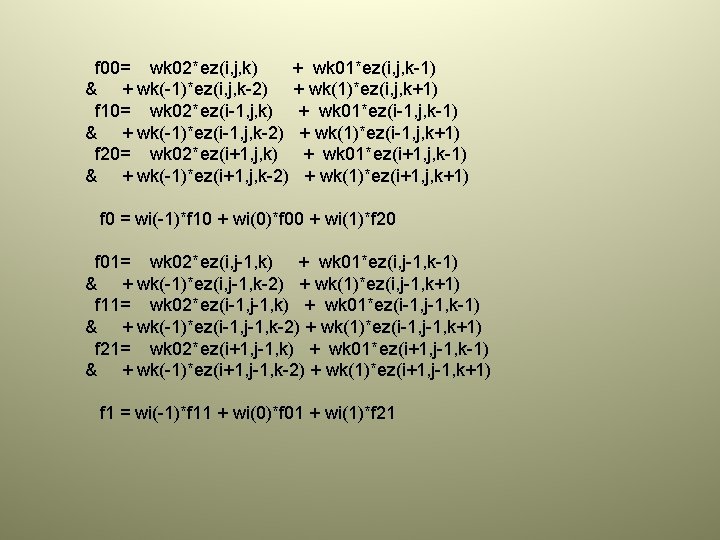 f00= wk02*ez(i,j,k) + wk01*ez(i,j,k-1)
& +wk(-1)*ez(i,j,k-2) +wk(1)*ez(i,j,k+1)
f10= wk02*ez(i-1,j,k) + wk01*ez(i-1,j,k-1)
& +wk(-1)*ez(i-1,j,k-2) +wk(1)*ez(i-1,j,k+1)
f20= wk02*ez(i+1,j,k) + wk01*ez(i+1,j,k-1)
& +wk(-1)*ez(i+1,j,k-2) +wk(1)*ez(i+1,j,k+1)
f0 = wi(-1)*f10 + wi(0)*f00 + wi(1)*f20
f01= wk02*ez(i,j-1,k) + wk01*ez(i,j-1,k-1)
& +wk(-1)*ez(i,j-1,k-2) +wk(1)*ez(i,j-1,k+1)
f11= wk02*ez(i-1,j-1,k) + wk01*ez(i-1,j-1,k-1)
& +wk(-1)*ez(i-1,j-1,k-2) +wk(1)*ez(i-1,j-1,k+1)
f21= wk02*ez(i+1,j-1,k) + wk01*ez(i+1,j-1,k-1)
& +wk(-1)*ez(i+1,j-1,k-2) +wk(1)*ez(i+1,j-1,k+1)
f1 = wi(-1)*f11 + wi(0)*f01 + wi(1)*f21